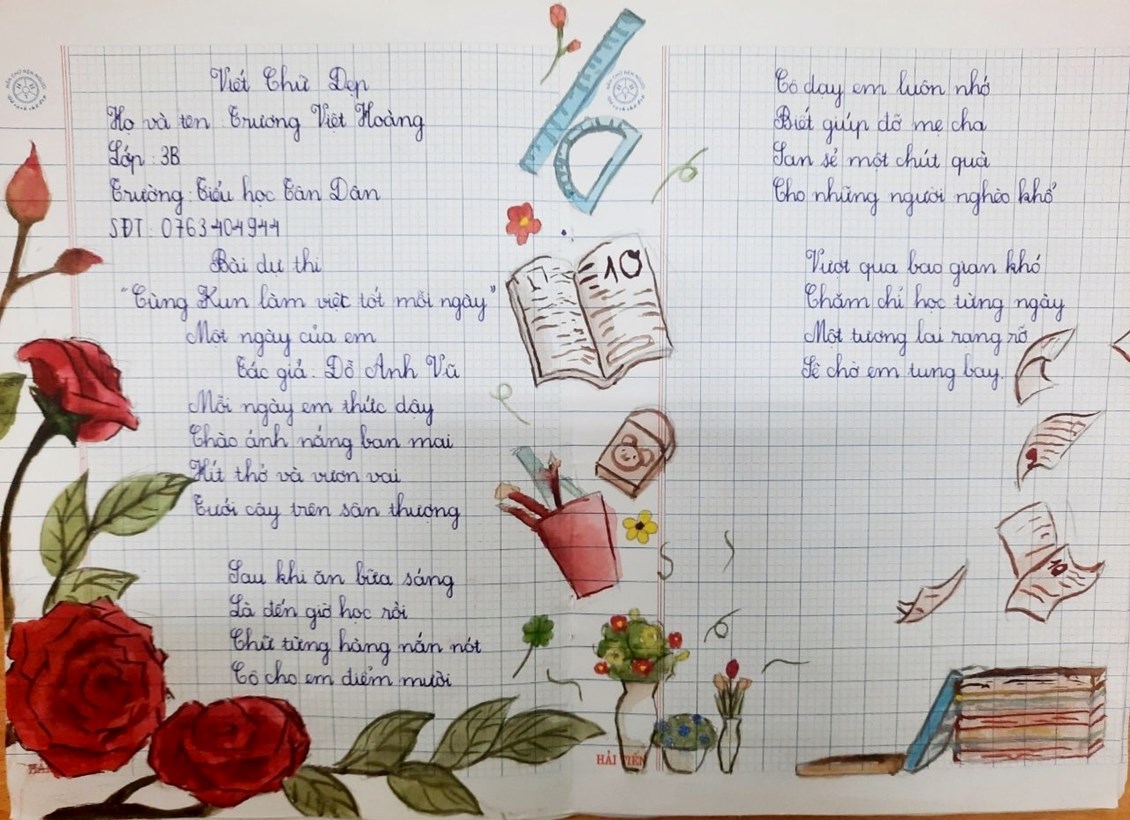 Viết Chữ Đẹp
Họ và tên: Trương Việt Hoàng
Lớp: 3B
Trường: Tiểu học Tân Dân
SĐT: 0763404944
Bài dự thi
"Cùng Kun làm việc tốt mỗi ngày"
Một ngày của em
Tác giả: Đỗ Anh Vũ
Mỗi ngày em thức dậy
Chào ánh nắng ban mai
Hít thở và vươn vai
Tưới cây trên sân thượng
Sau khi ăn bữa sáng
Là đến giờ học rồi
Chữ từng hàng nắn nót
Cô cho em điểm mười
HẢI TIẾN
10
Cô dạy em luôn nhớ
Biết giúp đỡ mẹ cha
San sẻ một chút quà
Cho những người nghèo khổ
Vượt qua bao gian khó
Chăm chỉ học từng ngày
Một tương lai rạng rỡ
Sẽ chờ em tung bay.
10